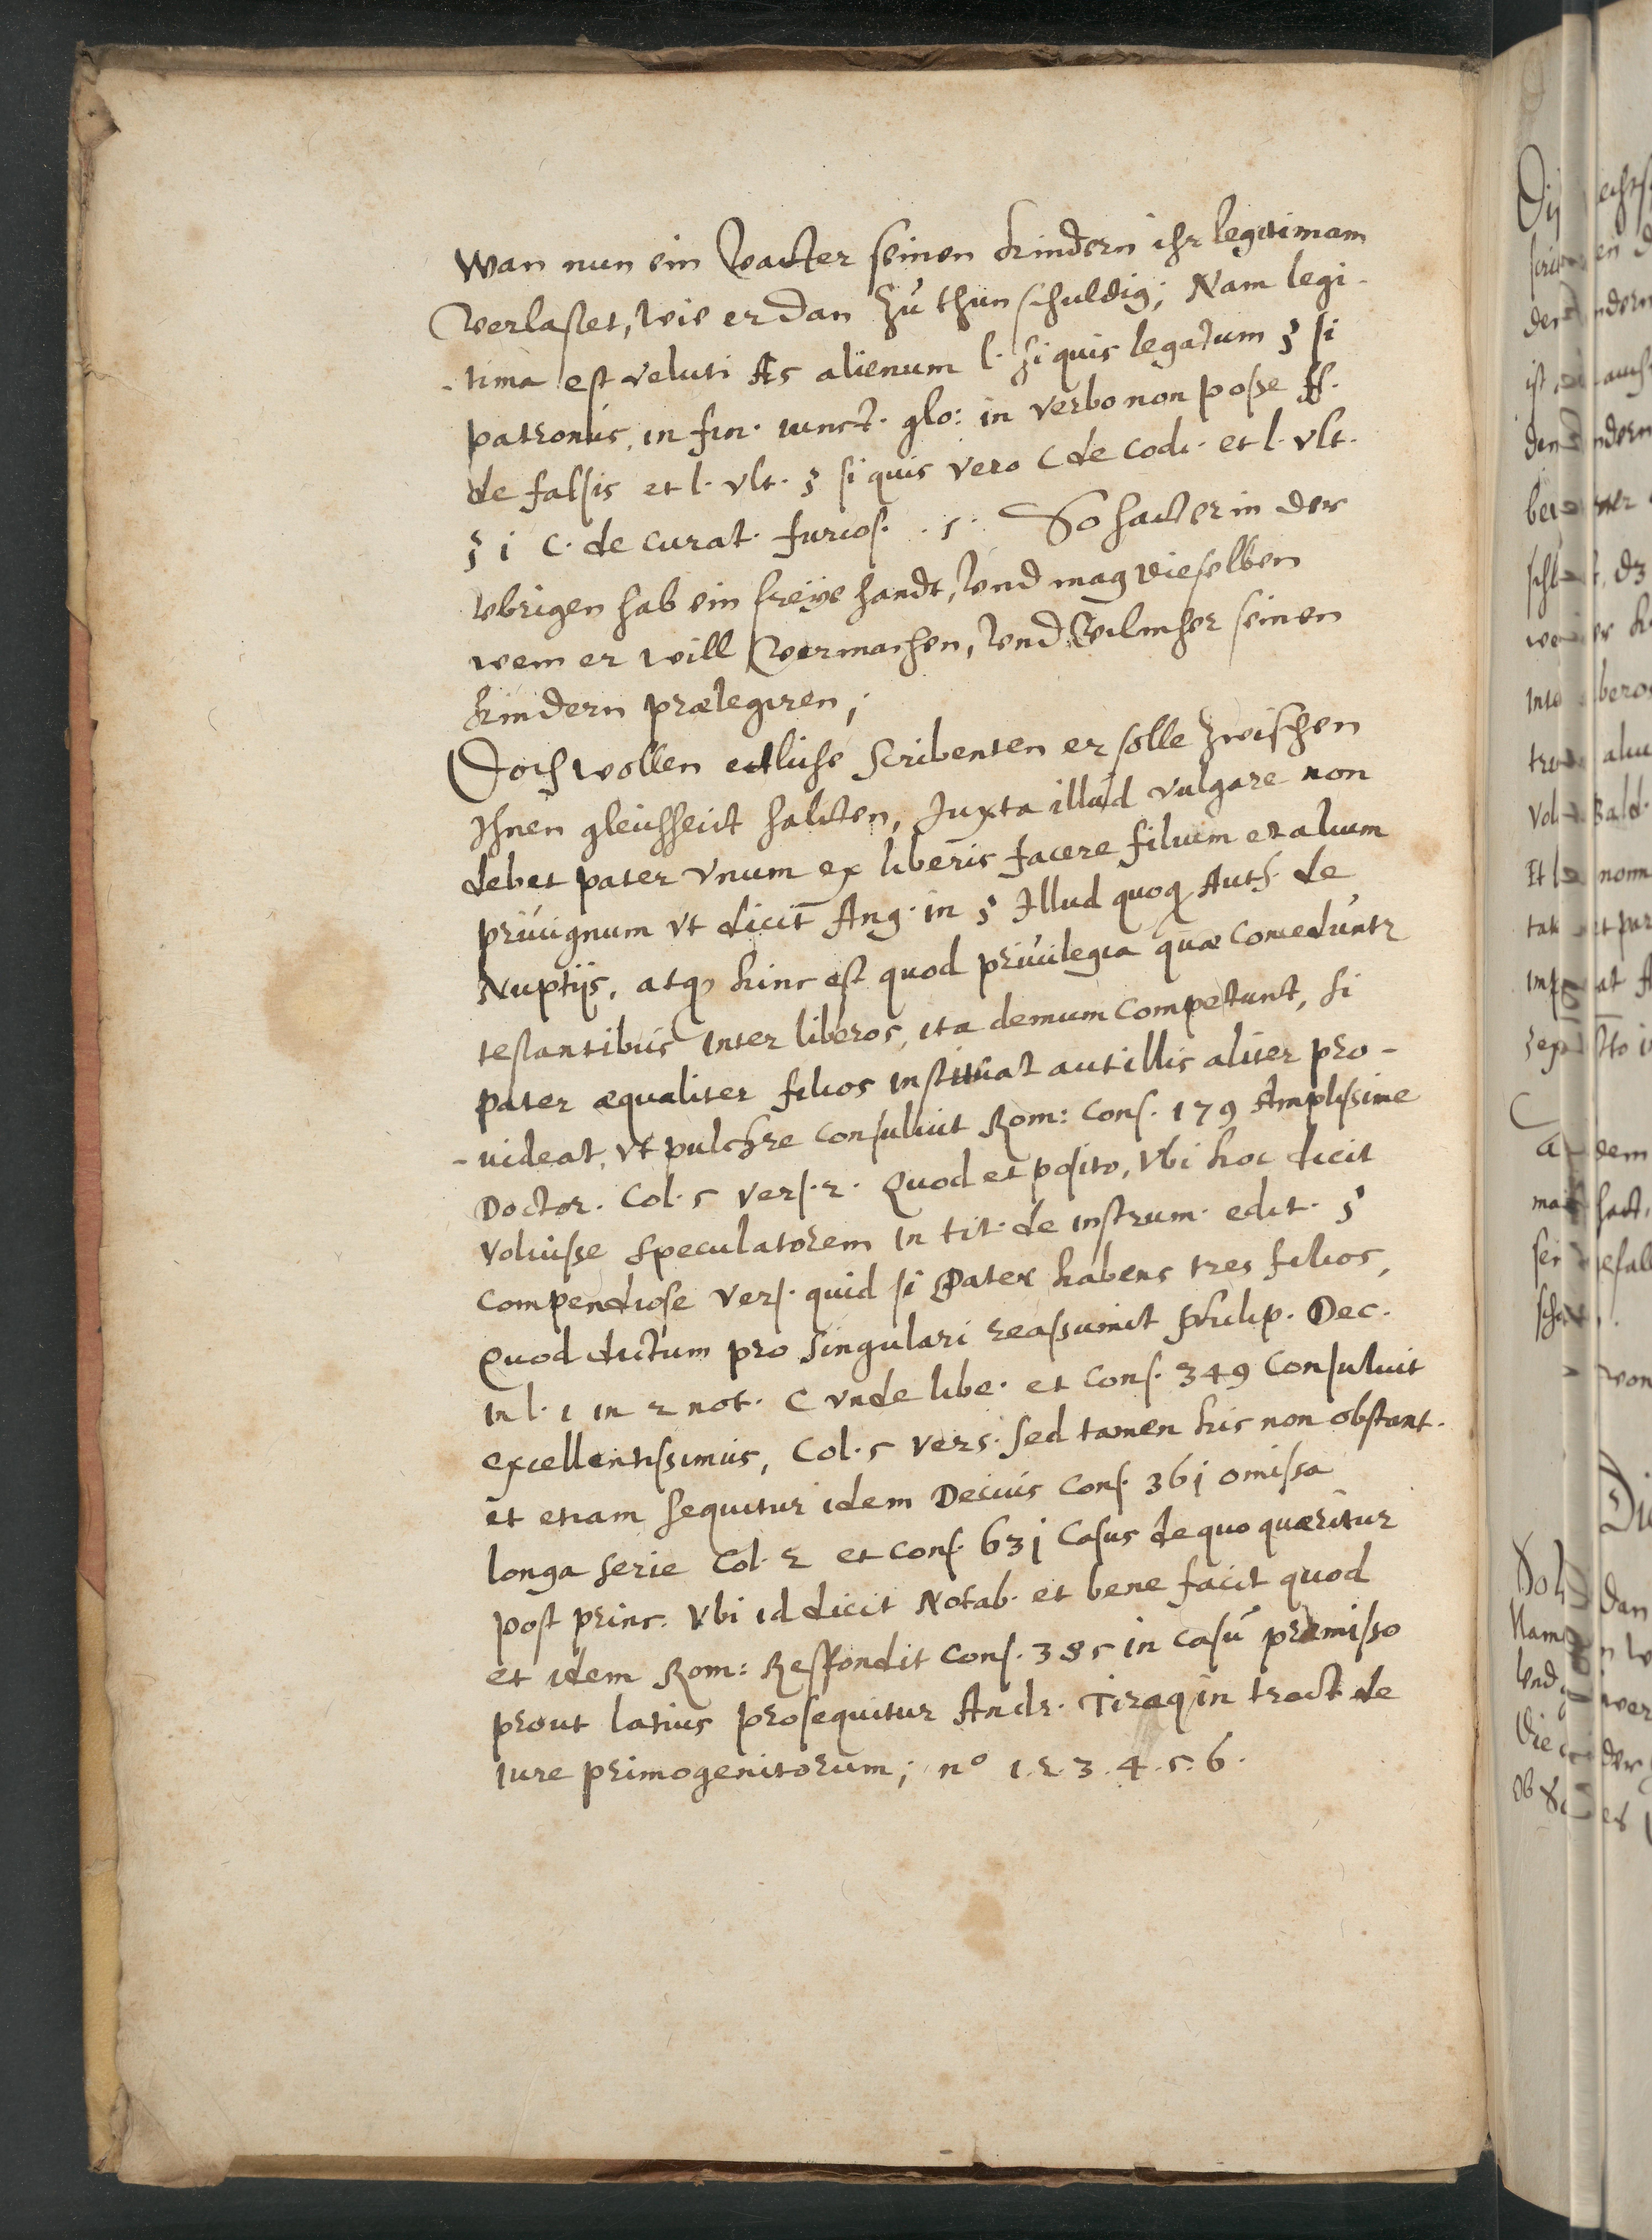 Wan nun ein Vatter seinen kindern ihr legitimam
Verlasset, wie er dan zu thun schuldig; Nam legi-
-tima est veluti As alienum l. si quis legatum § si
patronus, in fin. iunct. glo: in verbo non posse ff.
de falsis et l. vlt. § si quis vero C de Codi. et l. vlt.
§ i C. de curat. furios. . 5. So hatt er in der
vbrigen hab ein freÿe handt, vnd mag dieselben
wem er will Vermachen, vnd Welcher seinen
kindern prælegiren;
Doch wollen ettliche Scribenten er solle zwischen
Ihnen gleichheit halten, Juxta illud vulgare non
debet pater vnum ex liberis facere filium et alium
priuignum vt dicit Ang. in § Illud quoq Auth. de
Nuptijs, atq hinc est quod priuilegia quæ conceduntr
testantibus inter liberos, ita demum competunt, si
pater æqualiter filios instituat aut illis aliter pro-
-uideat, vt pulchre consuluit Rom: Cons. 179 Amplissime
Doctor. Col. 5 vers. 2. Quod et posito, Vbi hoc dicit
voluisse Speculatorem in tit. de instrum. edit. §
compendiose vers. quid si Pater habens tres filios,
Quod dictum pro singulari reassumit Philip. Dec.
in l. 1 in 2 not. C vnde libe. et Cons. 349 Consuluit
excellentissimus, Col. 5 vers. sed tamen his non obstant.
et etiam sequitur idem Decius Cons. 36j omissa
longa serie Col. 2 et Cons. 63j Casus de quo quæritur
post princ. Vbi id dicit Notab. et bene facit quod
et idem Rom: Respondit Cons. 385 in casu præmisso
prout latius prosequitur Andr. Tiraq in tract de
iure primogenitorum; nº 1. 2. 3. 4. 5. 6.